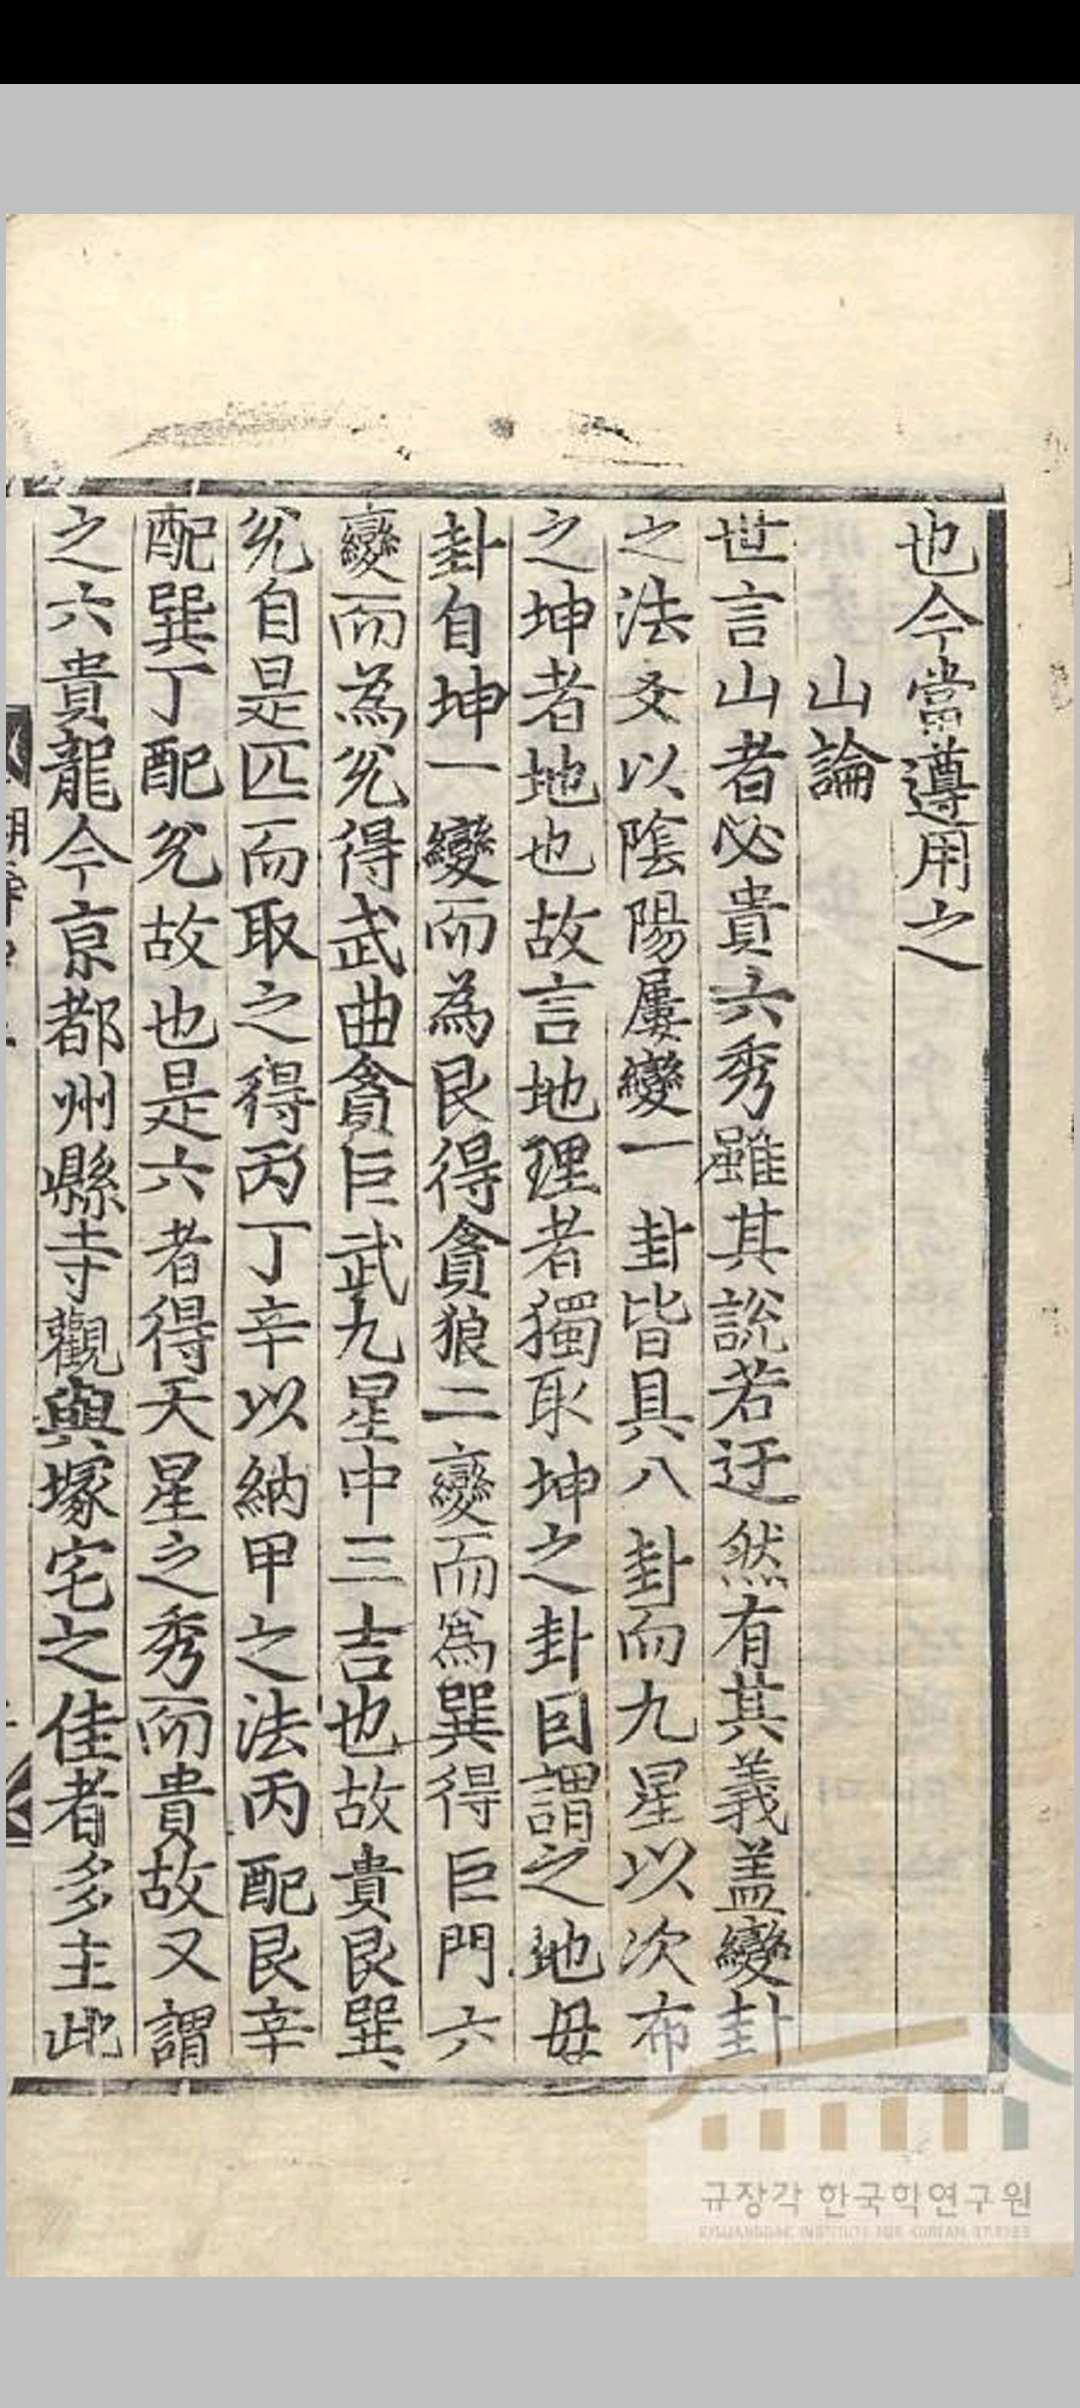 也今當遵用之
山論
世言山者必貴六秀雖其說若迂然有其義盖變卦
之法爻以陰陽屢變一卦皆具八卦而九星以次布
之坤者地也故言地理者獨取坤之卦目謂之地母
卦自坤一變而為艮得貪狼二變而爲巽得巨門六
變而為兊得武曲貪巨武九星中三吉也故貴艮巽
兊自是匹而取之得丙丁辛以納甲之法丙配艮辛
配巽丁配兊故也是六者得天星之秀而貴故又謂
之六貴龍今京都州縣寺觀與塚宅之佳者多主此
규장각 한국학연구원
KYUJANGGAK INSTITUTE FOR KOREAN STUDIES